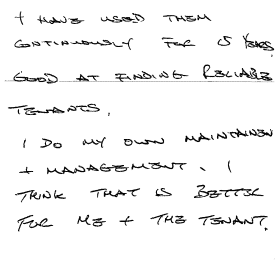 I HAVE USED THEM
CONTINUOUSLY FOR 5 YEARS.
GOOD AT FINDING RELIABLE
TENANTS.
I DO MY OWN MAINTAINEN
+ MANAGEMENT. I
THINK THAT IS BETTER
FOR ME + THE TENANT.